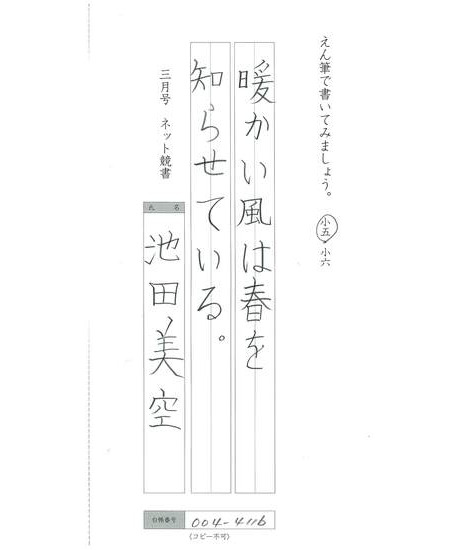 えん筆で書いてみましょう。
小五・小六
暖かい風は春を
知らせている。
三月号 ネット競書
氏名
池田美空
会員番号 004-4116
(コピー不可)